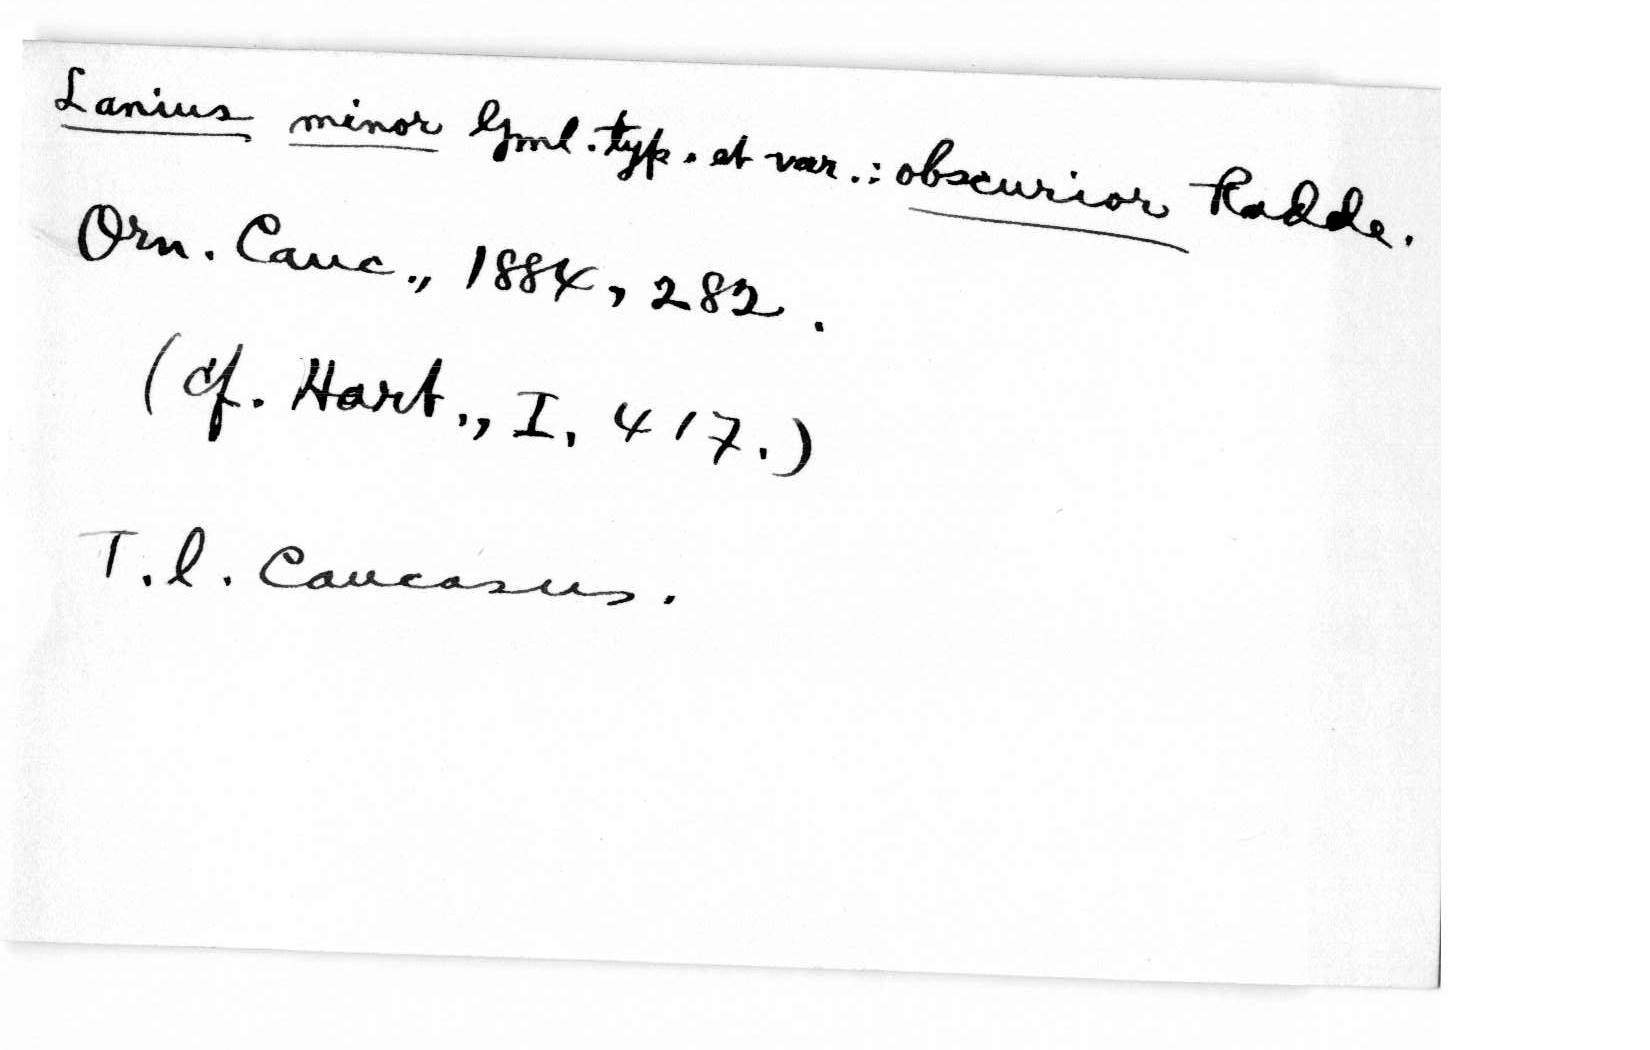 Lanius minor Gml. typ. et var.: obscurior Radde.
Orn. Cauc., 1884, 282.
(cf. Hart., I, 417.)
T.l. Caucasus.